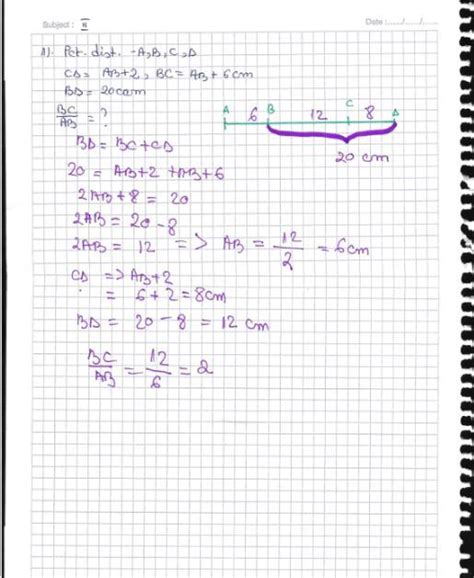 Subject : II
Date : ...../...../.....
A). Pct. dist. -A, B, C, D
CD = AB+2, BC = AB + 6cm
BD = 20cm
BC/AB = ?
A 6 B 12 C 8 D
20 cm
BD = BC + CD
20 = AB+2 +AB+6
2AB + 8 = 20
2AB = 20 - 8
2AB = 12 => AB = 12/2 = 6cm
CD => AB+2
= 6 + 2 = 8cm
BD = 20 - 8 = 12 cm
BC/AB = 12/6 = 2